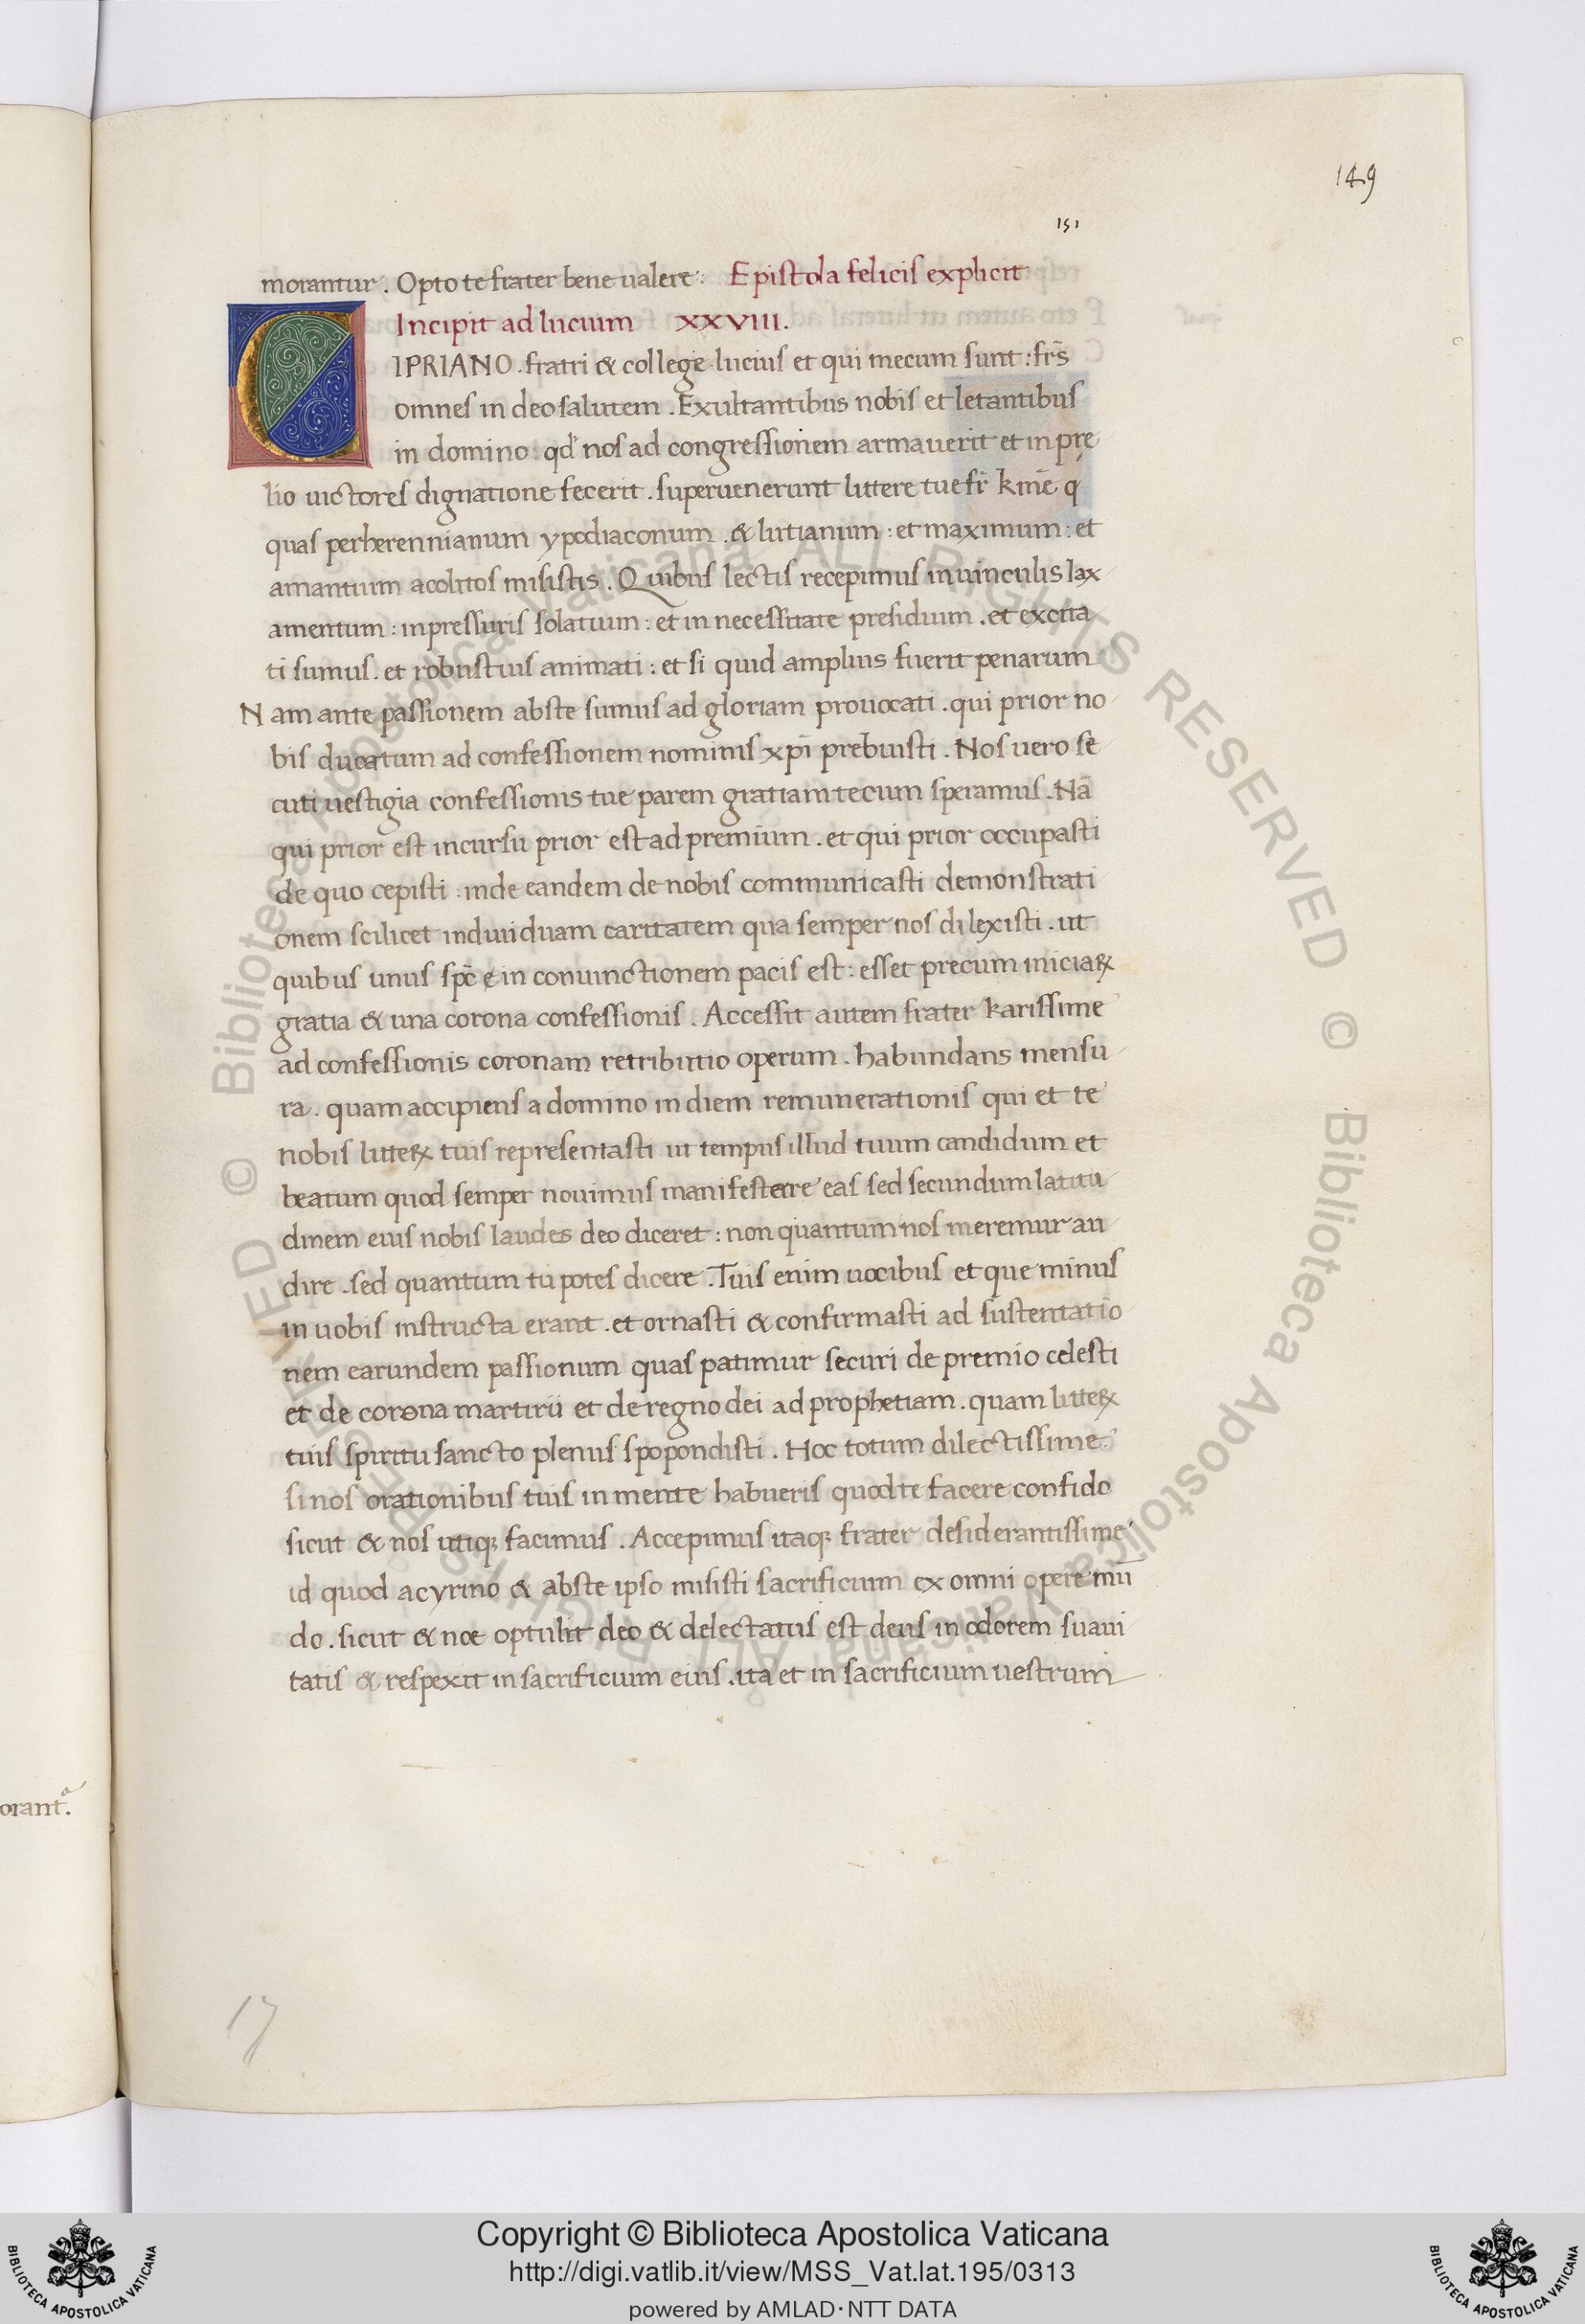 149
151
morantur. Opto te frater bene ualere: Epistola felicis explicit
Incipit ad lucium XXVIII.
CIPRIANO. fratri & college lucius et qui mecum sunt: frs̄
omnes in deo salutem. Exultantibus nobis et letantibus
in domino: qđ nos ad congressionem armauerit et in pre
lio uictores dignatione fecerit. superuenerunt littere tue fr̄ kmē q
quas per herennianum ypodiaconum. & lutianum: et maximum: et
amantium acolitos misistis. Quibus lectis recepimus in uinculis lax
amentum: in pressuris solatium: et in necessitate presidium. et excita
ti sumus. et robustius animati: et si quid amplius fuerit penarum
Nam ante passionem abs te sumus ad gloriam prouocati. qui prior no
bis ducatum ad confessionem nominis xp̄i prebuisti. Nos uero se
cuti uestigia confessionis tue parem gratiam tecum speramus. Nā
qui prior est in cursu prior est ad premium. et qui prior occupasti
de quo cepisti: inde eandem de nobis communicasti demonstrati
onem scilicet indiuiduam caritatem qua semper nos dilexisti. ut
quibus unus sp̄c ē in conuinctionem pacis est: esset precum iniciaꝝ
gratia & una corona confessionis. Accessit autem frater karissime
ad confessionis coronam retributio operum. habundans mensu
ra. quam accipiens a domino in diem remunerationis qui et te
nobis litteꝝ tuis representasti ut tempus illud tuum candidum et
beatum quod semper nouimus manifestare eas sed secundum latitu
dinem eius nobis laudes deo diceret: non quantum nos meremur au
dire. sed quantum tu potes dicere. Tuis enim uocibus et que minus
in uobis instructa erant. et ornasti & confirmasti ad sustentatio
nem earundem passionum quas patimur securi de premio celesti
et de corona martirii et de regno dei ad prophetiam. quam litteꝝ
tuis spiritu sancto plenus spopondisti. Hoc totum dilectissime
si nos orationibus tuis in mente habueris quod te facere confido
sicut & nos utiqꝫ facimus. Accepimus itaqꝫ frater desiderantissime
id quod a cyrino & abs te ipso misisti sacrificium ex omni opere mū
do. sicut & noe optulit deo & delectatus est deus in odorem suaui
tatis & respexit in sacrificium eius. ita et in sacrificium uestrum
orant.
17
© Biblioteca Apostolica Vaticana ALL RIGHTS RESERVED © Biblioteca Apostolica Vaticana ALL RIGHTS RESERVED
Copyright © Biblioteca Apostolica Vaticana
http://digi.vatlib.it/view/MSS_Vat.lat.195/0313
powered by AMLAD · NTT DATA
BIBLIOTECA APOSTOLICA VATICANA
BIBLIOTECA APOSTOLICA VATICANA